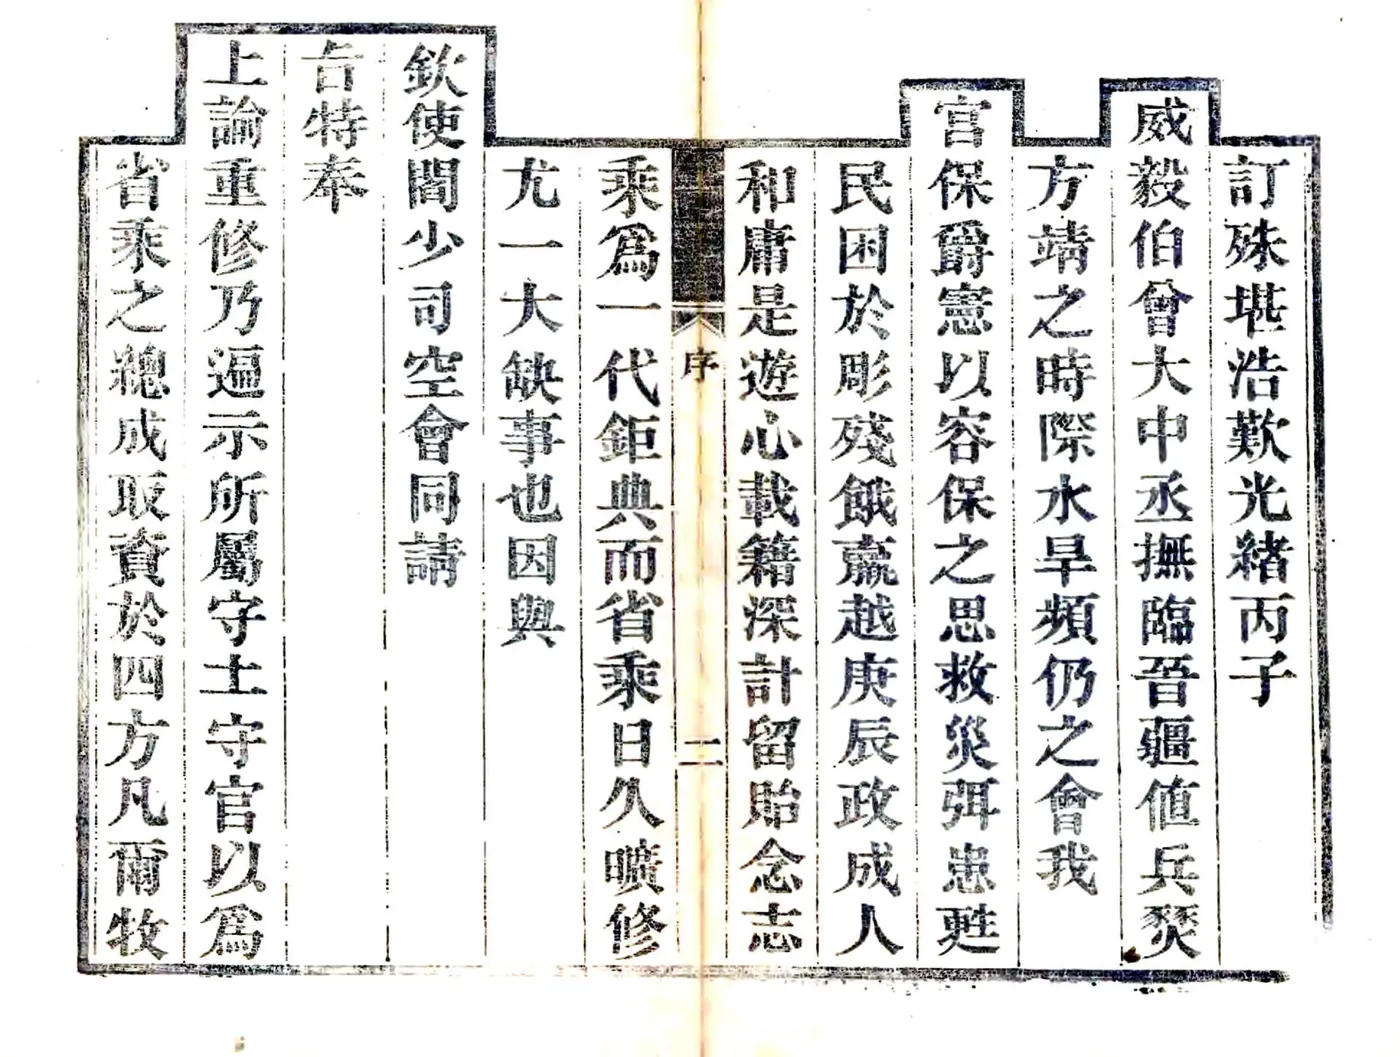 訂殊堪浩歎光緖丙子
威毅伯曾大中丞撫臨晉疆値兵燹
方靖之時際水旱頻仍之會我
宮保爵憲以容保之思救災弭患甦
民困於彫殘餓羸越庚辰政成人
和庸是遊心載籍深計留貽念志
序
二
乘爲一代鉅典而省乘日久曠修
尤一大缺事也因與
欽使閻少司空會同請
旨特奉
上諭重修乃遍示所屬守土守官以爲
省乘之總成取資於四方凡爾牧